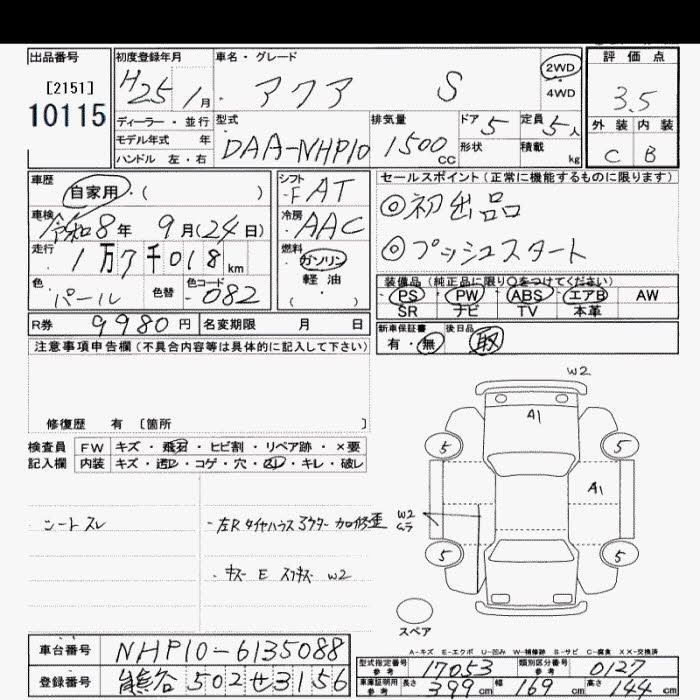 出品番号
[2151]
10115
初度登録年月
H25 1月
車名・グレード
アクア S
2WD
4WD
評価点
3.5
外装 内装
C B
ディーラー・並行
モデル年式 年
ハンドル 左・右
型式
DAA-NHP10
排気量
1500cc
ドア 5
形状
定員 5人
積載 kg
車歴
自家用・( )
車検
令和8年 9月(24日)
走行
1万7千018km
色
パール
色替
色コード
-082
シフト
-F AT
冷房
AAC
燃料
ガソリン
軽油
( )
セールスポイント(正常に機能するものに限ります)
◎初出品
◎プッシュスタート
装備品(純正品に限り○をつけてください)
PS PW ABS エアB AW
SR ナビ TV 本革
R券 9980円
名変期限 月 日
新車保証書 後日品
有・無 取
注意事項申告欄(不具合内容等は具体的に記入して下さい)
修復歴 有 〔箇所 〕
検査員
記入欄
FW キズ・飛石・ヒビ割・リペア跡・×要
内装 キズ・汚レ・コゲ・穴・スレ・キレ・破レ
シートスレ
・左Rタイヤハウスアウター加修歪
・キズ E スリキズ W2
W2
A1
5
5
A1
W2
ムラ
5
5
スペア
A-キズ E-エクボ U-凹み W-補修跡 S-サビ C-腐食 XX-交換済
車台番号 NHP10-6135088
登録番号 熊谷 502 せ 3156
型式指定番号
参考
17053
類別区分番号
参考
0127
車庫証明用
参考
長さ 399cm 幅 169cm 高さ 144cm